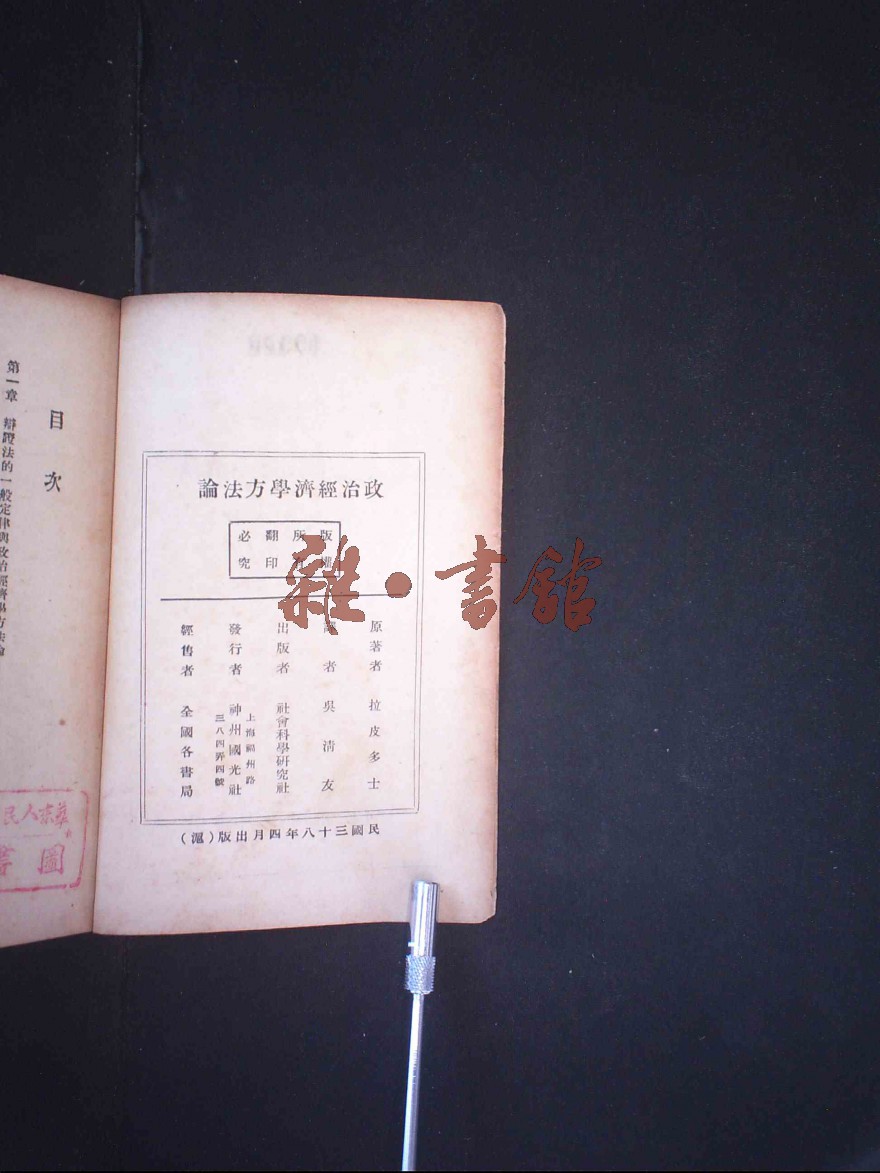 政治經濟學方法論
版所翻必
權有印究
原著者 拉皮多士
譯者 吳清友
出版者 社會科學研究社
發行者 神州國光社
上海福州路
三八四弄四號
經售者 全國各書局
民國三十八年四月出版（滬）
目次
第一章 辯證法的一般定律與政治經濟學方法論
雜·書館
人民
圖書